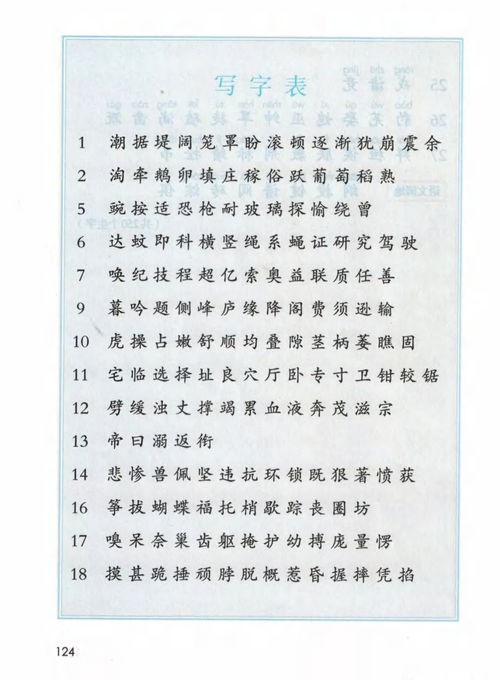 写字表
1 潮据堤阔笼罩盼滚顿逐渐犹崩震余
2 淘牵鹅卵填庄稼俗跃葡萄稻熟
5 豌按适恐枪耐玻璃探愉绕曾
6 达蚊即科横竖绳系蝇证研究驾驶
7 唤纪技程超亿索奥益联质任善
9 暮吟题侧峰庐缘降阁费须逊输
10 虎操占嫩舒顺均叠隙茎柄萎瞧固
11 宅临选择址良穴厅卧专寸卫钳较锯
12 劈缓浊丈撑竭累血液奔茂滋宗
13 帝曰溺返衔
14 悲惨兽佩坚违抗环锁既狠著愤获
16 筝拔蝴蝶福托梢歇踪丧圈坊
17 嗅呆奈巢齿躯掩护幼搏庞量愣
18 摸甚跪捶顽脖脱概惹昏握摔凭掐
124